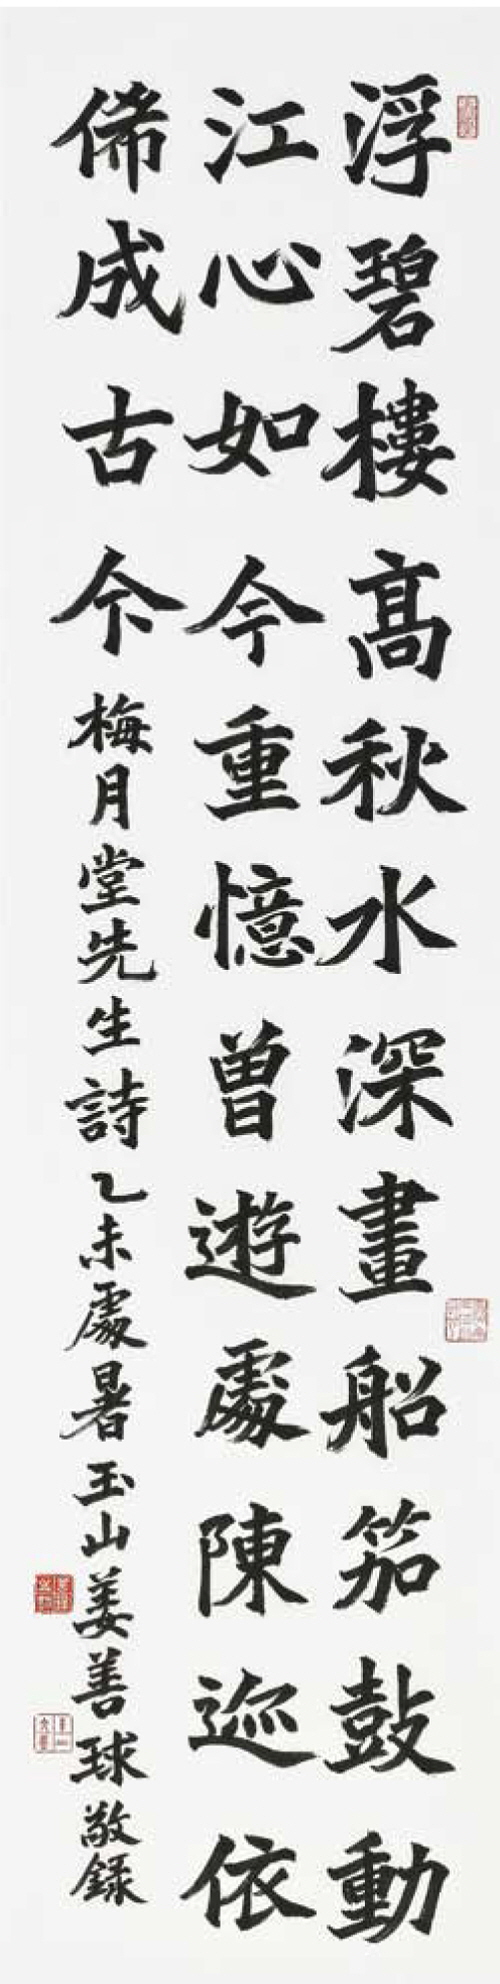 浮碧樓髙秋水深畫船笳鼓動
江心如今重憶曾遊處陳迹依
俙成古今梅月堂先生詩乙未處暑玉山姜善球敬錄